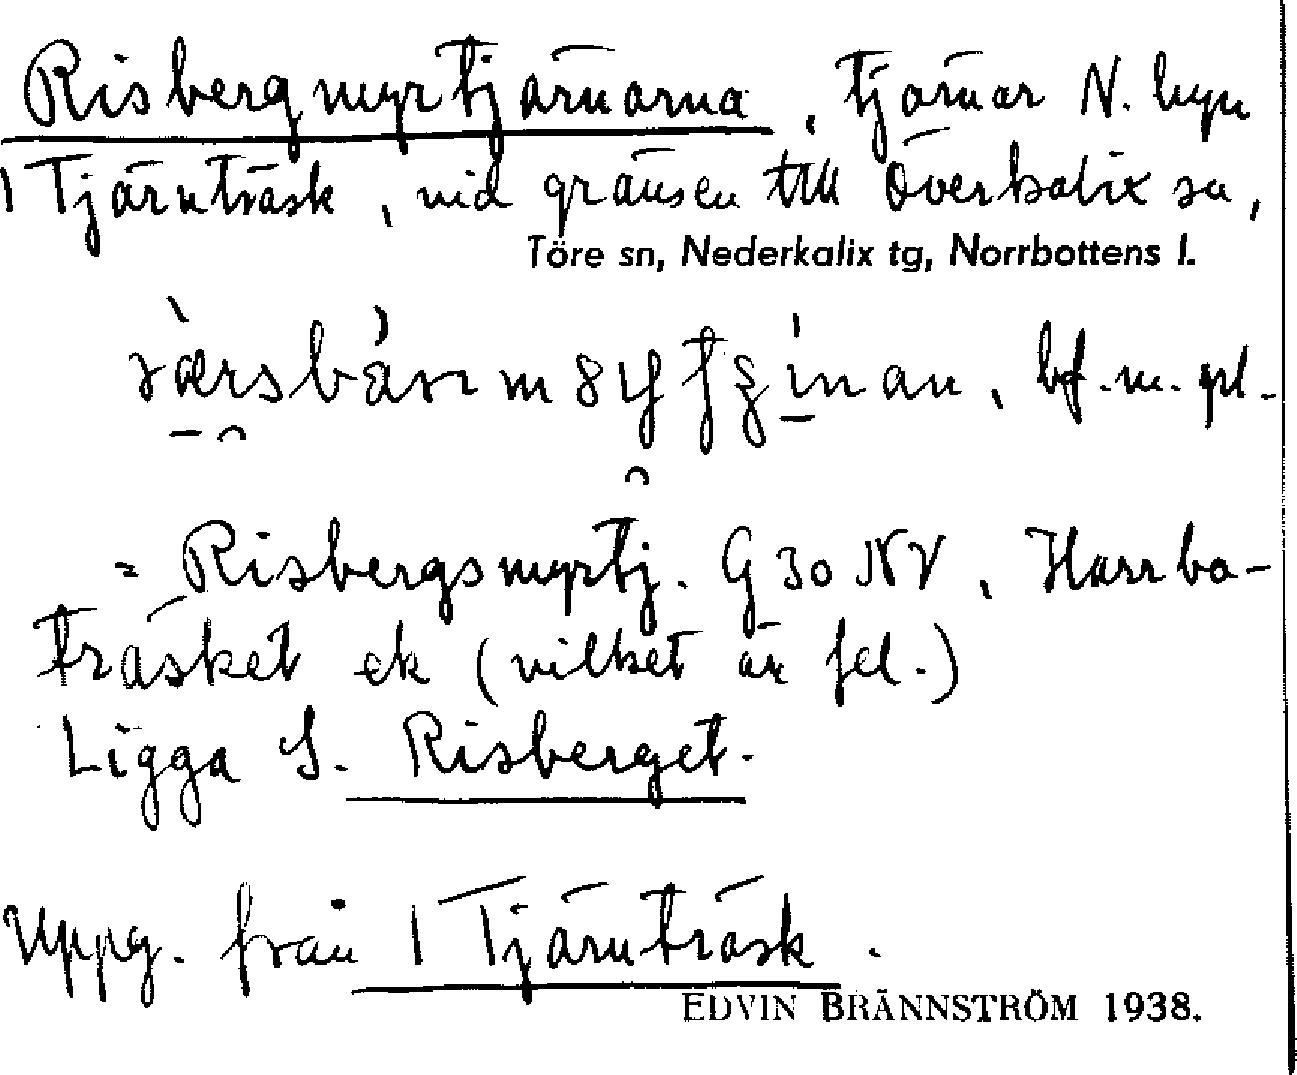 Risbergmyrtjärnarna, tjärnar N. byn
1 Tjärnträsk, vid gränsen till Överkalix sn,
Töre sn, Nederkalix tg, Norrbottens l.
bf. m. pl.
= Risbergsmyrtj. G 30 NV, Harrbo-
träsket ek (vilket är fel.)
Ligga S. Risberget.
Uppg. från 1 Tjärnträsk.
EDVIN BRÄNNSTRÖM 1938.